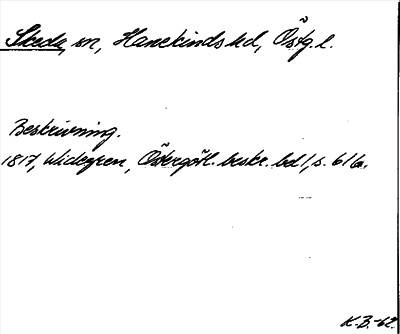 Skeda, sn, Hanekinds hd, Östg. l.
Beskrivning.
1817, Widegren, Östergötl. beskr. bd 1, s. 616.
K.B.-62.